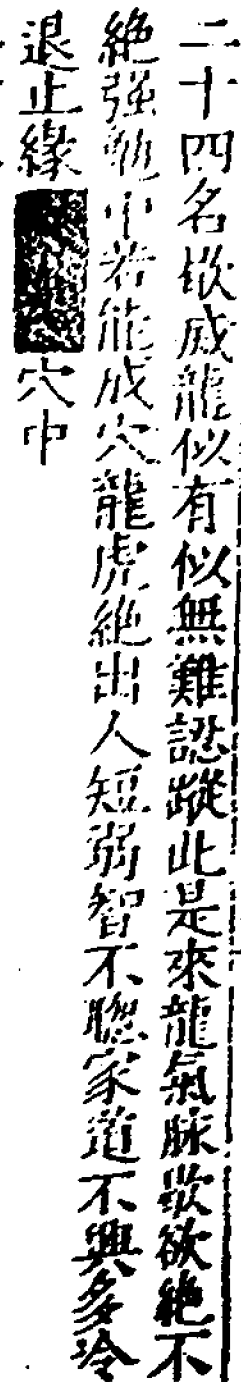 二十四名成龍似有似無難認蹤此是來龍氣脉欲絶不
絶强中若能成穴龍虎絶出人短弱智不聰家道不興多冷
退止緣穴中